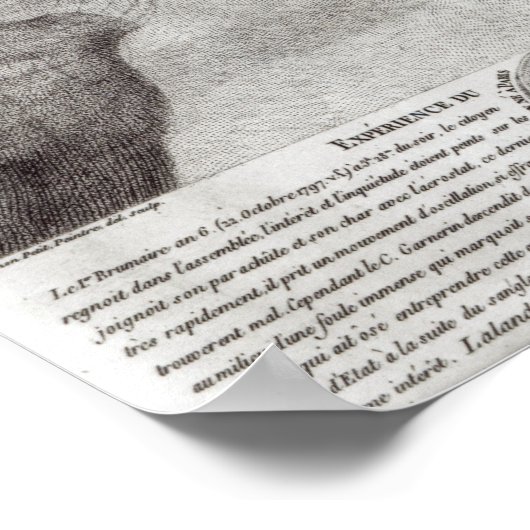 Peintre del. sculp.
EXPERIENCE DU
A PARIS
Le 1er Brumaire an 6. (22. Octobre 1797. v.s.) a 5h. 28m. du soir, le citoyen
regnoit dans l'assemblée, l'interet et l'inquiétude étoient peints sur les
joignoit son parachûte et son char avec l'aerostat, ce dern
très rapidement il prit un mouvement d'oscillation si eff
trouverent mal. Cependant le C. Garnerin descendit
au milieu d'une foule immense qui marquoit
qui ait osé entreprendre cette
d'Etat à la suite du
me intérêt. Laland